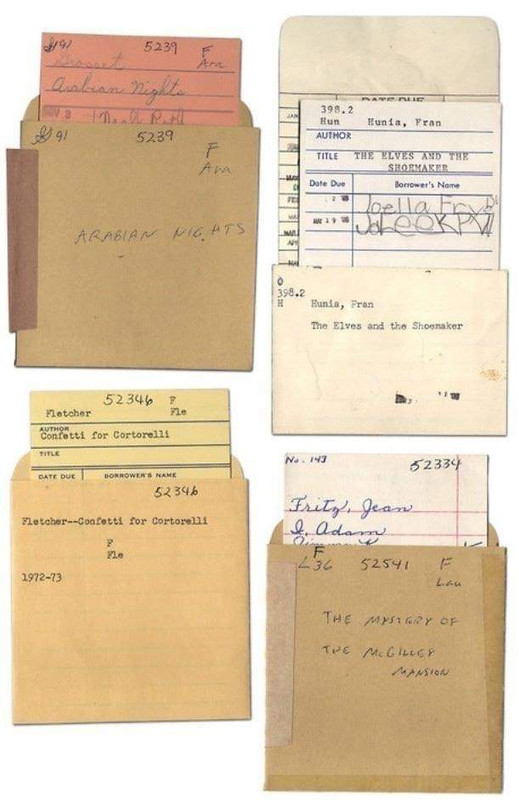 $1.91 5239 F
Grosset Ara
Arabian Nights
NOV 3
$1.91 5239
F
Ara
ARABIAN NIGHTS
DATE DUE
398.2
Hun Hunia, Fran
AUTHOR
TITLE THE ELVES AND THE
SHOEMAKER
Date Due Borrower's Name
Joella
MAY 19
O
398.2
H Hunia, Fran
The Elves and the Shoemaker
52346 F
Fletcher Fle
AUTHOR
Confetti for Cortorelli
TITLE
DATE DUE BORROWER'S NAME
52346
Fletcher--Confetti for Cortorelli
F
Fle
1972-73
No. 143 52334
Fritz, Jean
I, Adam
F
L36 52541 F
Lau
THE MYSTERY OF
THE McGILLEY
MANSION